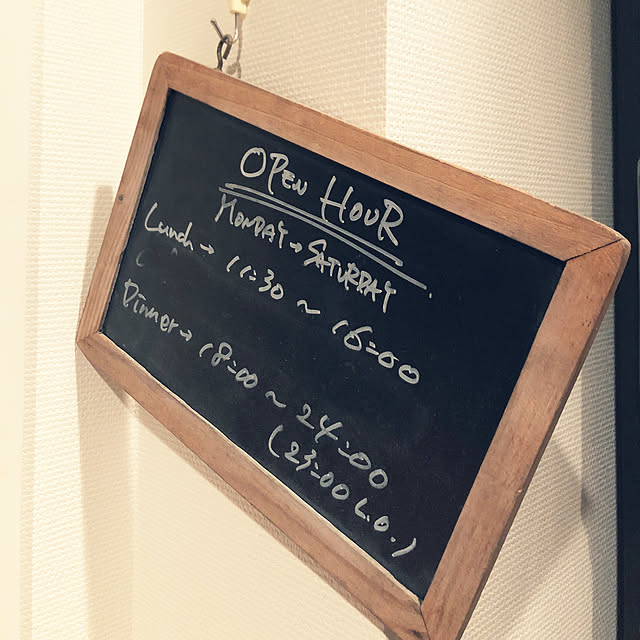 OPEN HOUR
MONDAY → SATURDAY.
Lunch → 11:30 ~ 16:00
Dinner → 18:00 ~ 24:00
(23:00 L.O.)